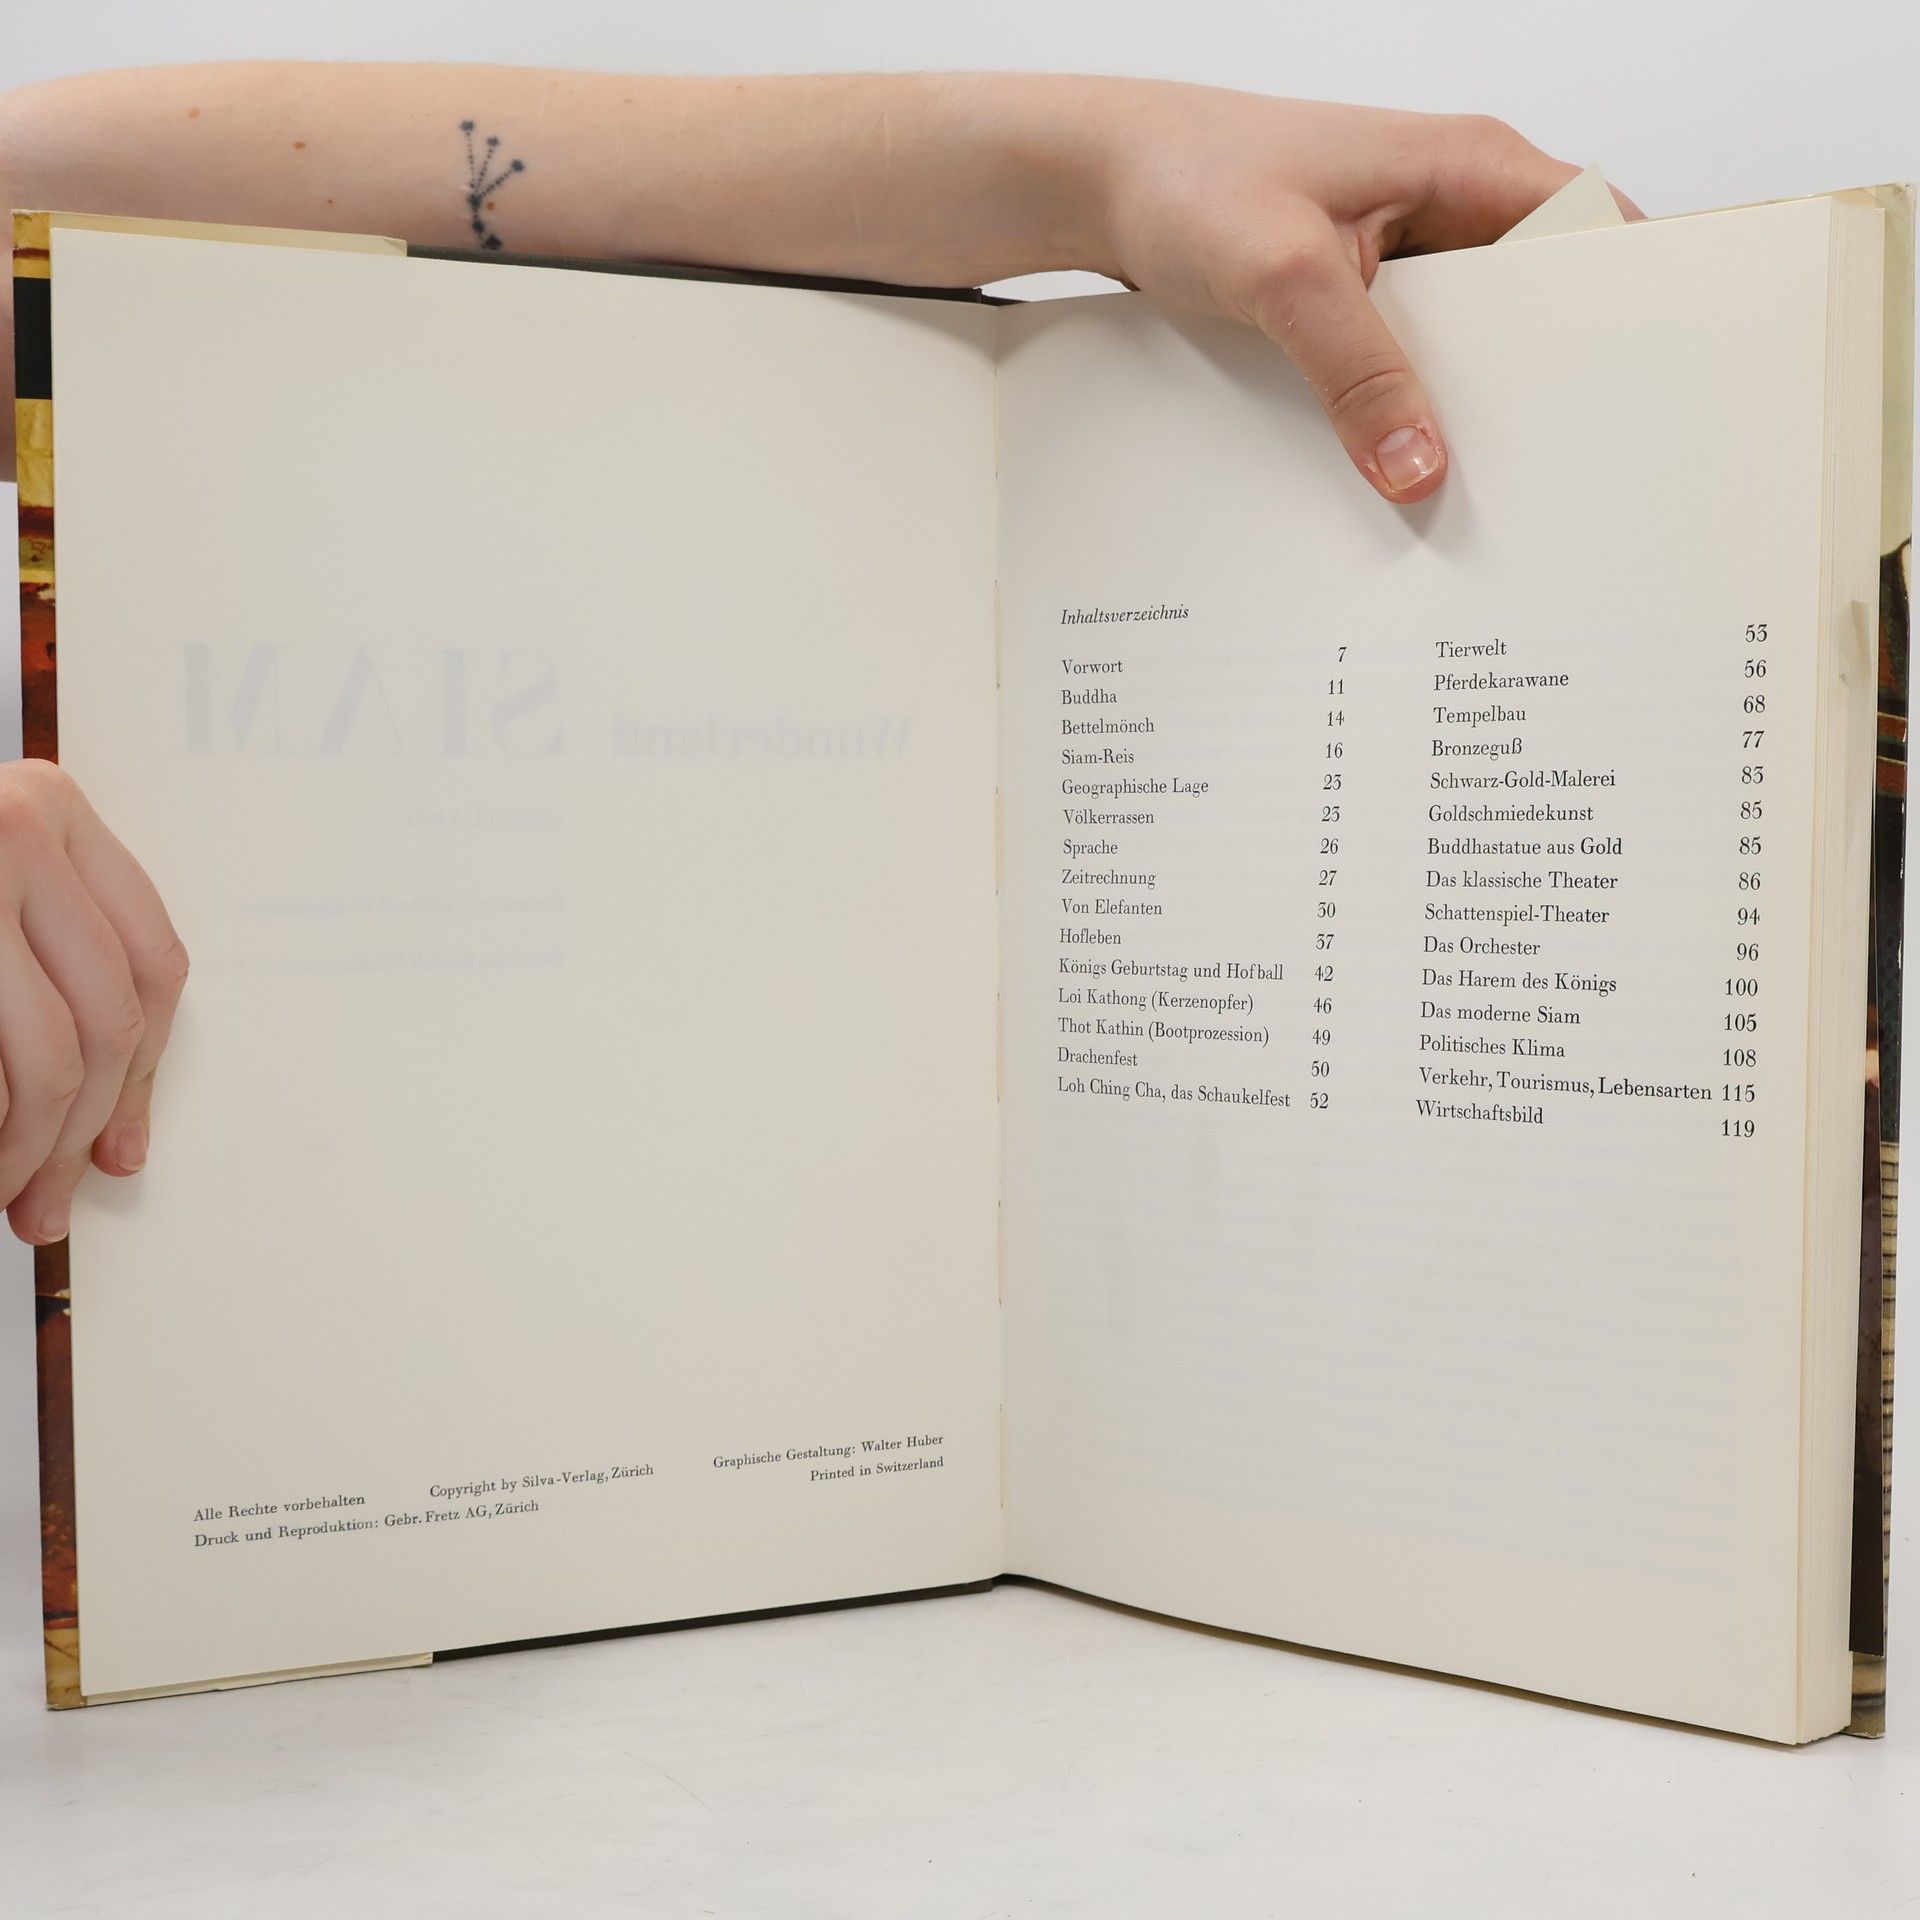 Wunderland SIAM
Alle Rechte vorbehalten Copyright by Silva-Verlag, Zürich Graphische Gestaltung: Walter Huber
Druck und Reproduktion: Gebr. Fretz AG, Zürich Printed in Switzerland
Inhaltsverzeichnis
Vorwort 7
Buddha 11
Bettelmönch 14
Siam-Reis 16
Geographische Lage 23
Völkerrassen 23
Sprache 26
Zeitrechnung 27
Von Elefanten 30
Hofleben 37
Königs Geburtstag und Hofball 42
Loi Kathong (Kerzenopfer) 46
Thot Kathin (Bootprozession) 49
Drachenfest 50
Loh Ching Cha, das Schaukelfest 52
Tierwelt 53
Pferdekarawane 56
Tempelbau 68
Bronzeguß 77
Schwarz-Gold-Malerei 83
Goldschmiedekunst 85
Buddhastatue aus Gold 85
Das klassische Theater 86
Schattenspiel-Theater 94
Das Orchester 96
Das Harem des Königs 100
Das moderne Siam 105
Politisches Klima 108
Verkehr, Tourismus, Lebensarten 115
Wirtschaftsbild 119